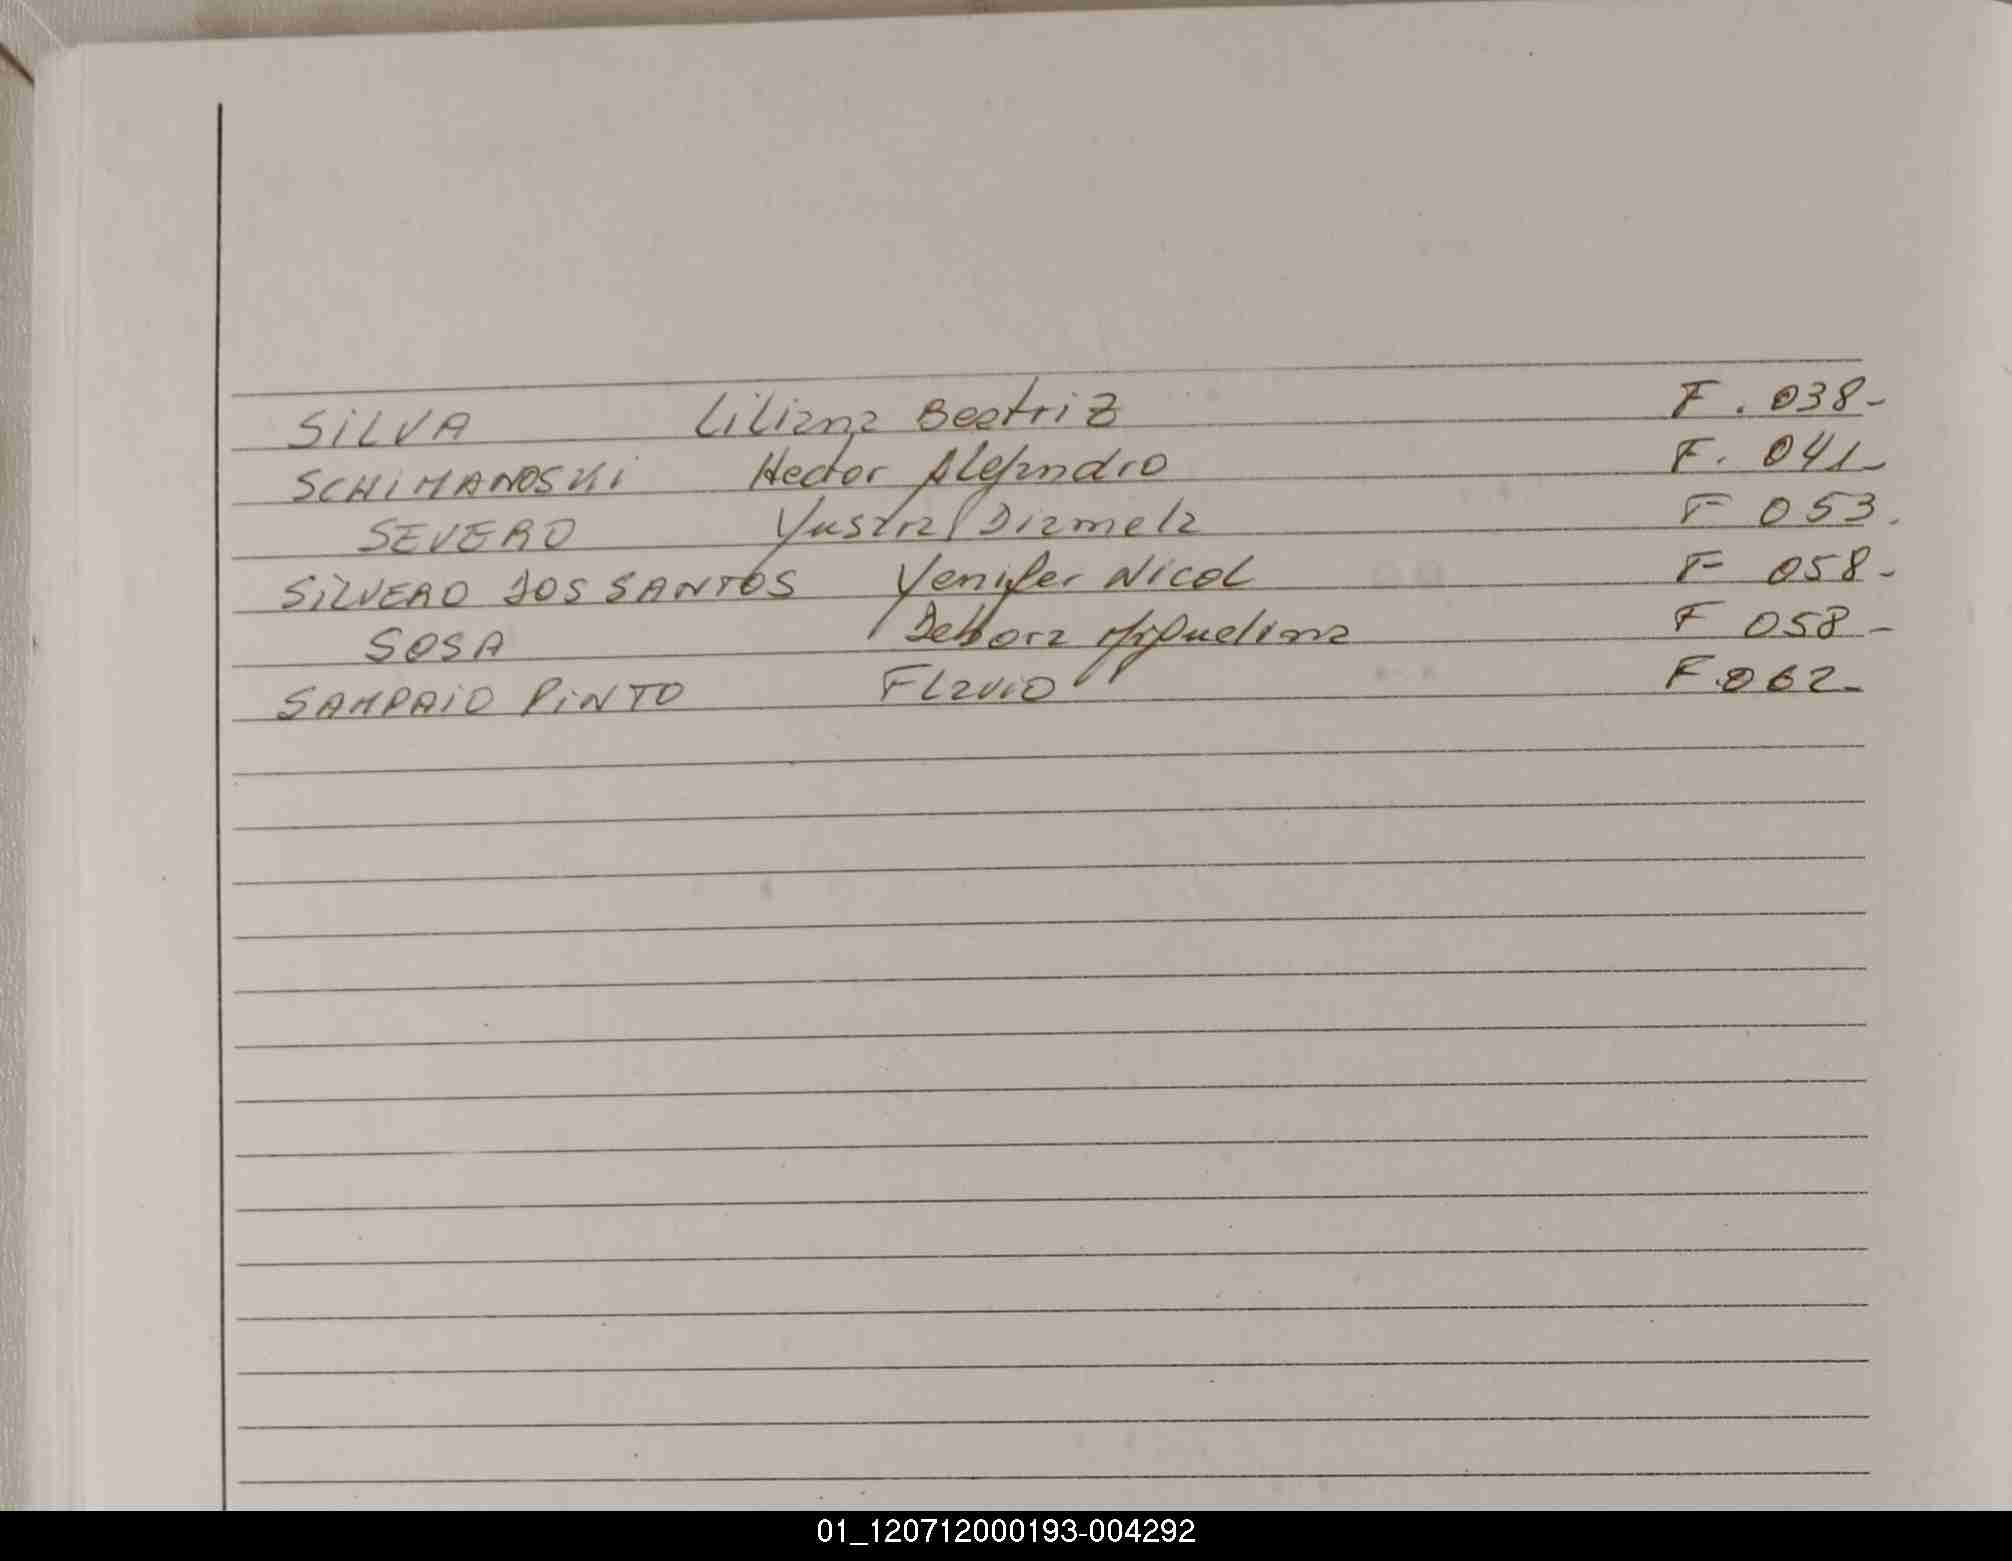 SILVA Liliana Beatriz F. 038-
SCHIMANOSKI Hector Alejandro F. 041-
SEVERO Diamela F 053.
SILVERO DOS SANTOS Yenifer Nicol F 058-
SOSA Debora Miguelina F 058-
SAMPAIO PINTO Flavio F.062-
01_120712000193-004292